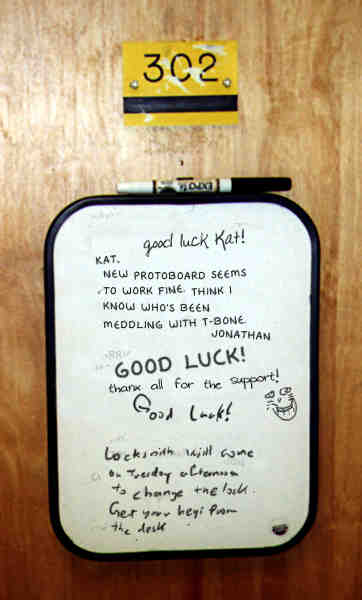 302
EXPO
good luck Kat!
KAT.
NEW PROTOBOARD SEEMS
TO WORK FINE. THINK I
KNOW WHO'S BEEN
MEDDLING WITH T-BONE
JONATHAN
GOOD LUCK!
thanx all for the support!
Good Luck!
Locksmith will come
on Tuesday afternoon
to change the lock.
Get your keys from
the desk